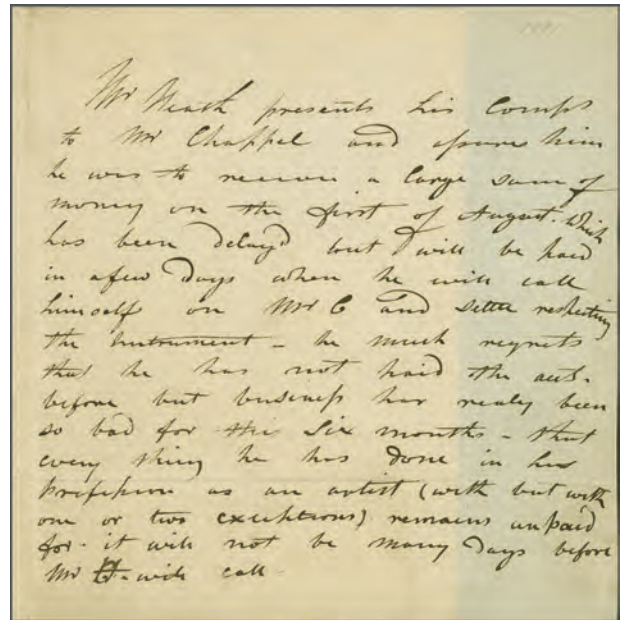 Mr Heath presents his Compts
to Mr Chappel and assures him
he was to receive a large sum of
money on the first of August. which
has been delay'd but will be paid
in a few days when he will call
himself on Mr C and settle respecting
the Instrument – he much regrets
that he has not paid the act.
before but business has realy been
so bad for this Six months – that
every thing he has done in his
profession as an artist (with but with
one or two exceptions) remains unpaid
for. it will not be many days before
Mr H. will call